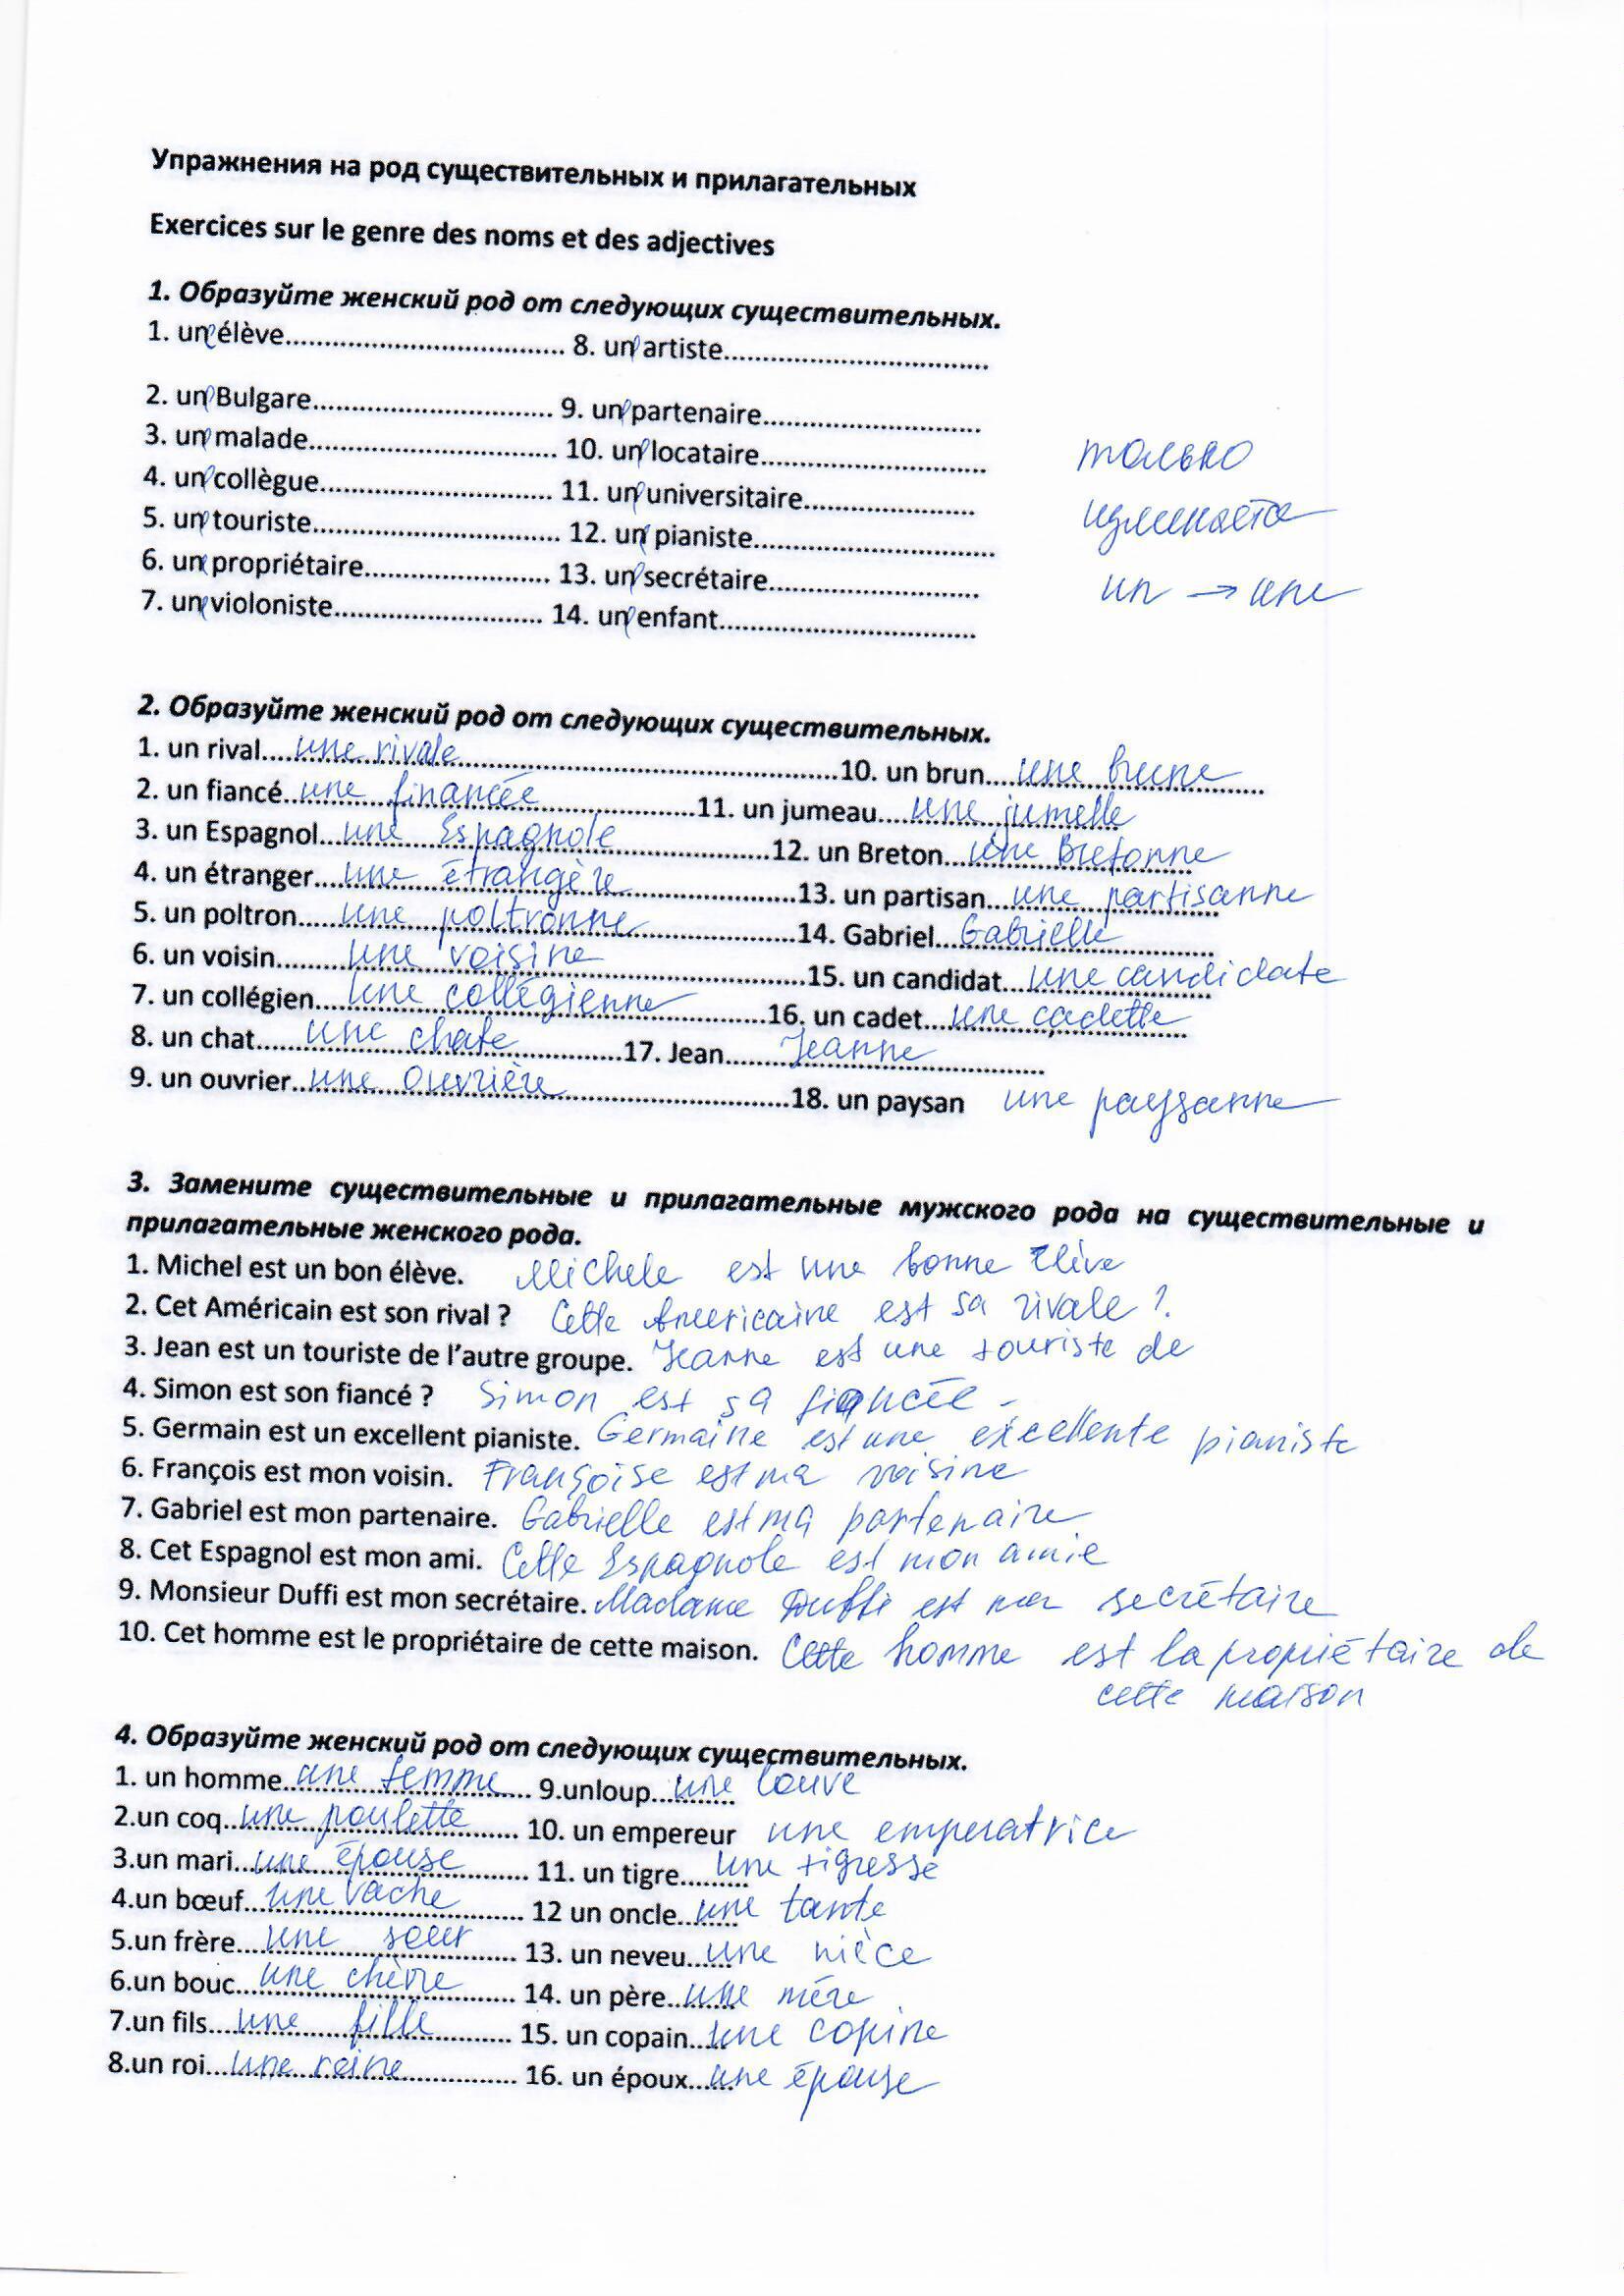 Упражнения на род существительных и прилагательных
Exercices sur le genre des noms et des adjectives
1. Образуйте женский род от следующих существительных.
1. une élève.................................... 8. une artiste..................................
2. une Bulgare............................... 9. une partenaire............................
3. une malade................................ 10. une locataire.............................
4. une collègue.............................. 11. une universitaire......................
5. une touriste................................ 12. une pianiste...............................
6. une propriétaire........................ 13. une secrétaire...........................
7. une violoniste........................... 14. une enfant.................................
только
изменяется
un → une
2. Образуйте женский род от следующих существительных.
1. un rival.... une rivale ....10. un brun.... une brune
2. un fiancé.. une financée ....11. un jumeau.... une jumelle
3. un Espagnol... une Espagnole ....12. un Breton... une Bretonne
4. un étranger... une étrangère ....13. un partisan... une partisanne
5. un poltron.... une poltronne ....14. Gabriel... Gabrielle
6. un voisin.... une voisine ....15. un candidat... une candidate
7. un collégien.... une collégienne ....16. un cadet.... une cadette
8. un chat.... une chate ....17. Jean.... Jeanne
9. un ouvrier.. une ouvrière ....18. un paysan une paysanne
3. Замените существительные и прилагательные мужского рода на существительные и
прилагательные женского рода.
1. Michel est un bon élève. Michele est une bonne élève
2. Cet Américain est son rival ? Cette Americaine est sa rivale ?
3. Jean est un touriste de l’autre groupe. Jeanne est une touriste de
4. Simon est son fiancé ? Simon est sa fiancée -
5. Germain est un excellent pianiste. Germaine est une excellente pianiste
6. François est mon voisin. Françoise est ma voisine
7. Gabriel est mon partenaire. Gabrielle est ma partenaire
8. Cet Espagnol est mon ami. Cette Espagnole est mon amie
9. Monsieur Duffi est mon secrétaire. Madame Duffi est ma secrétaire
10. Cet homme est le propriétaire de cette maison. Cette homme est la propriétaire de
cette maison
4. Образуйте женский род от следующих существительных.
1. un homme.. une femme .... 9.unloup... une louve
2.un coq.. une poulette .... 10. un empereur une emperatrice
3.un mari.. une épouse .... 11. un tigre........ une tigresse
4.un bœuf... une vache .... 12 un oncle.. une tante
5.un frère... une soeur .... 13. un neveu... une nièce
6.un bouc... une chèvre .... 14. un père.. une mére
7.un fils... une fille .... 15. un copain.... une copine
8.un roi... une reine .... 16. un époux..... une épouse